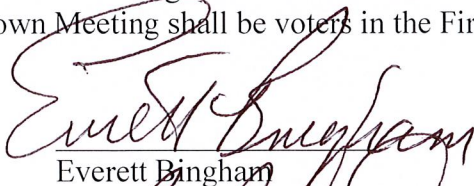 own Meeting shall be voters in the Fir
Everett Bingham
Everett Bingham